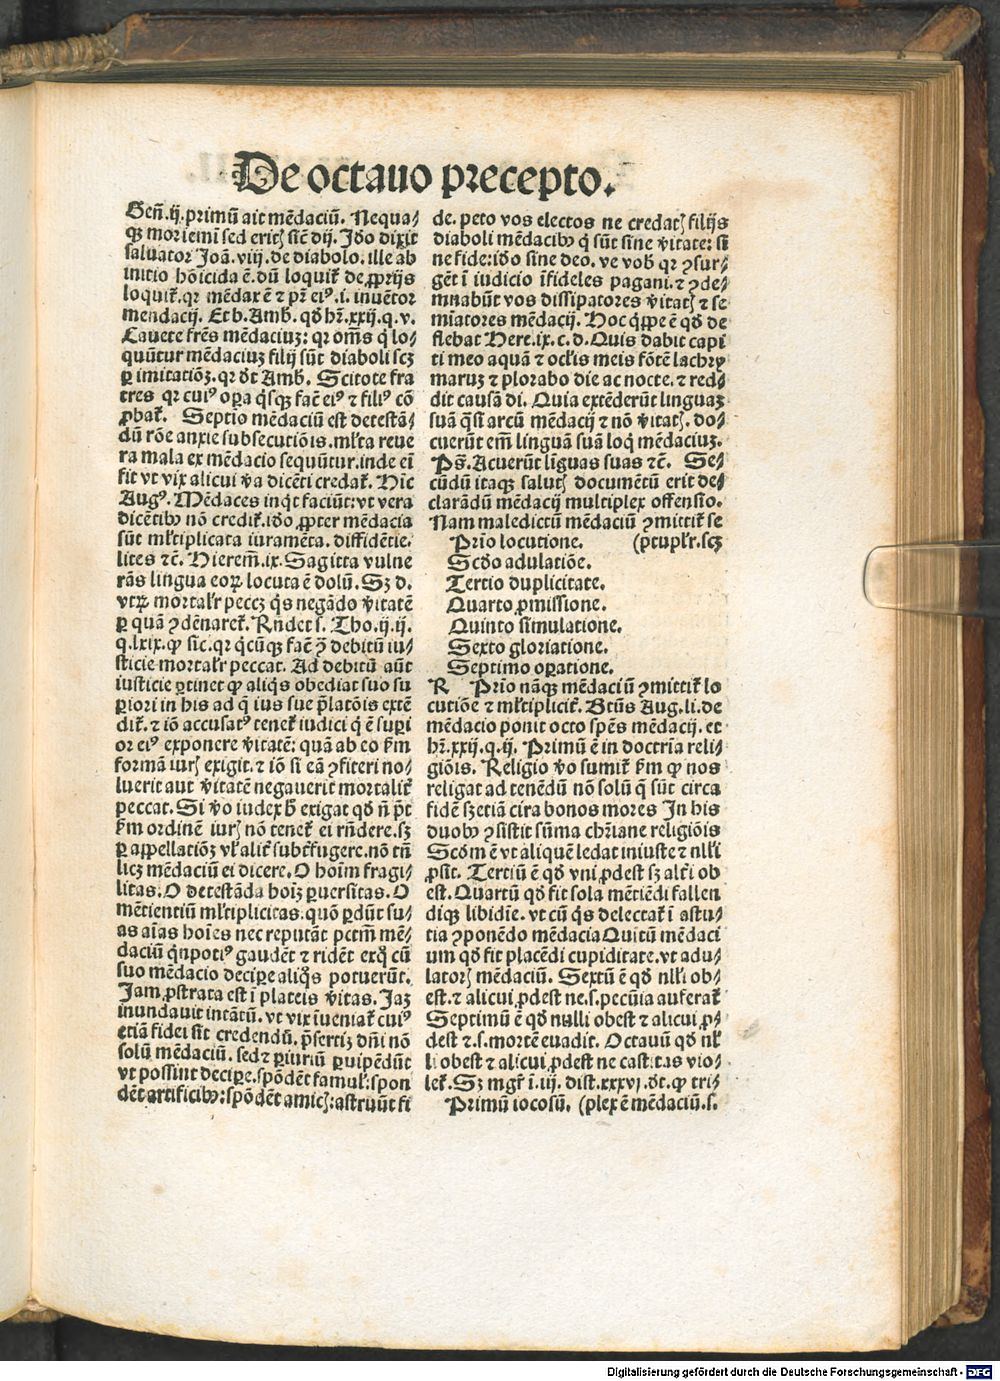 De octauo precepto.
Geñ.ij.primū ait mēdaciū. Nequa⸗
q̄ꝫ moriemi sed eritꝭ sic̄ dij. Iđo dixit
saluator Joā.viij.de diabolo.ille ab
initio hōicida ē.dū loquit̄ de ꝓprijs
loquit̄.qꝛ mēdax ē ⁊ pr̄ eiꝰ.i.inuētor
mendacij. Et b.Amb.qđ hr̄.xxij.q.v.
Cauete fr̄es mēdaciuꝫ: qꝛ oēs q̇ lo⸗
quūtur mēdaciuꝫ filij sūt diaboli scꝫ
ꝑ imitatiōꝫ.qꝛ đt Amb. Scitote fra
tres qꝛ cuiꝰ oꝑa q̇sqꝫ facē eiꝰ ⁊ filiꝰ cō
ꝓbat̄. Septio mēdaciū est detestā⸗
dū rōe anxie subsecutiōis.ml̄ta reue
ra mala ex mēdacio sequūtur.inde ei̅
fit vt vix alicui v̄a dicēti credat̄. Hic
Augꝰ. Mēdaces inq̇t faciūt:vt vera
dicētibꝰ nō credit̄.iđo ꝓpter mēdacia
sūt ml̄tiplicata iuramēta.diffidētie.
lites ⁊c̄. Hierem̄.ix.Sagitta vulne
rās lingua eoꝝ locuta ē dolū. Sꝫ d.
vtꝝ mortal'r peccꝫ q̇s negādo v̄itatē
ꝑ quā ꝯdēnaret̄. Rn̄det s. Tho.ij.ij.
q.lxix.ꝙ sic.qꝛ q̇cūqꝫ facē ꝯ̄ debitū iu⸗
sticie mortal'r peccat. Ad debitū aūt
iusticie ꝑtinet ꝙ aliq̇s obediat suo su
ꝑiori in his ad q̄ ius sue p̄latōis extē
dit̄.⁊ iō accusatꝰ tenet̄ iudici q̇ ē suꝑi
or eiꝰ exponere v̄itatē: quā ab eo ẜm
formā iurꝭ exigit.⁊ iō si eā ꝯfiteri no⸗
luerit aut v̄itatē negauerit mortalit̄
peccat. Si v̄o iudex ħ exigat qđ n̄ p̄t
ẜm ordinē iurꝭ nō tenet̄ ei rn̄dere.sꝫ
ꝑ appellatiōꝫ vl' alit̄ subt̄fugere.nō tn̄
licꝫ mēdaciū ei dicere.O hoīm fragi⸗
litas.O detestāda hoīꝫ ꝑuersitas.O
mētientiū ml̄tiplicitas.quō ꝑdūt su⸗
as aīas hoīes nec reputāt pctm̄ mē⸗
daciū q̇npotiꝰ gaudēt ⁊ ridēt exq̇ cū
suo mēdacio deciꝑe aliq̇s potuerūt.
Jam ꝓstrata est ī plateis v̄itas. Jaꝫ
inundauit intātū.vt vix īueniat̄ cuiꝰ
etiā fidei sit credendū.p̄sertiꝫ dn̄i nō
solū mēdaciū.sed ⁊ ꝑiuriū ꝑuipēdūt
vt possint deciꝑe.spōdēt famul':spon
dēt artificibꝰ:spōdēt amicꝭ:astruūt fi
de.peto vos electos ne credatꝭ filijs
diaboli mēdacibꝰ q̇ sūt sine v̄itate: si
ne fide:iđo sine deo.ve vob̄ qꝛ ꝯsur⸗
gēt ī iudicio īfideles pagani.⁊ ꝯde⸗
mnabūt vos dissipatores v̄itatꝭ ⁊ se
mīatores mēdacij. Hoc q̇ppe ē qđ de
flebat Here.ix.c.d.Quis dabit capi
ti meo aquā ⁊ ocl̄is meis fōtē lachry
maruꝫ ⁊ plorabo die ac nocte.⁊ red⸗
dit causā di. Quia extēderūt linguaꝫ
suā q̇si arcū mēdacij ⁊ nō v̄itatꝭ. do⸗
cuerūt em̄ linguā suā loq̇ mēdaciuꝫ.
Ps̄.Acuerūt līguas suas ⁊c̄. Se⸗
cūdū itaqꝫ salutꝭ documētū erit de⸗
clarādū mēdacij multiplex offensio.
Nam maledictū mēdaciū ꝯmittit̄ se
Prīo locutione. (ptupl'r.scꝫ
Scđo adulatiōe.
Tertio duplicitate.
Quarto ꝓmissione.
Quinto simulatione.
Sexto gloriatione.
Septimo oꝑatione.
R Prīo nāqꝫ mēdaciū ꝯmittit̄ lo
cutiōe ⁊ ml̄tiplicit̄. Btūs Aug.li.de
mēdacio ponit octo spēs mēdacij. et
hr̄.xxij.q.ij. Primū ē in doctrīa reli⸗
giōis. Religio v̄o sumit̄ ẜm ꝙ nos
religat ad tenēdū nō solū q̄ sūt circa
fidē sꝫ etiā cira bonos mores In his
duobꝰ ꝯsistit sūma chr̄iane religiōis
Scđm ē vt aliquē ledat iniuste ⁊ nll'i
ꝓsit. Tertiū ē qđ vni ꝓdest sꝫ alt̄i ob
est. Quartū qđ fit sola mētiēdi fallen
diqꝫ libidīe.vt cū q̇s delectat̄ ī astu⸗
tia ꝯponēdo mēdacia Quītū mēdaci
um qđ fit placēdi cupiditate.vt adu⸗
latorꝭ mēdaciū. Sextū ē qđ nll'i ob⸗
est.⁊ alicui ꝓdest ne.s.pecūia auferat̄
Septimū ē qđ nulli obest ⁊ alicui ꝓ⸗
dest ⁊.s.mortē euadit. Octauū qđ nl'
li obest ⁊ alicui ꝓdest ne castitas vio⸗
let̄. Sꝫ mgr̄ ī.iij.dist.xxxvj.đt.ꝙ tri⸗
Primū iocosū. (plex ē mēdaciū.s.
Digitalisierung gefördert durch die Deutsche Forschungsgemeinschaft - DFG